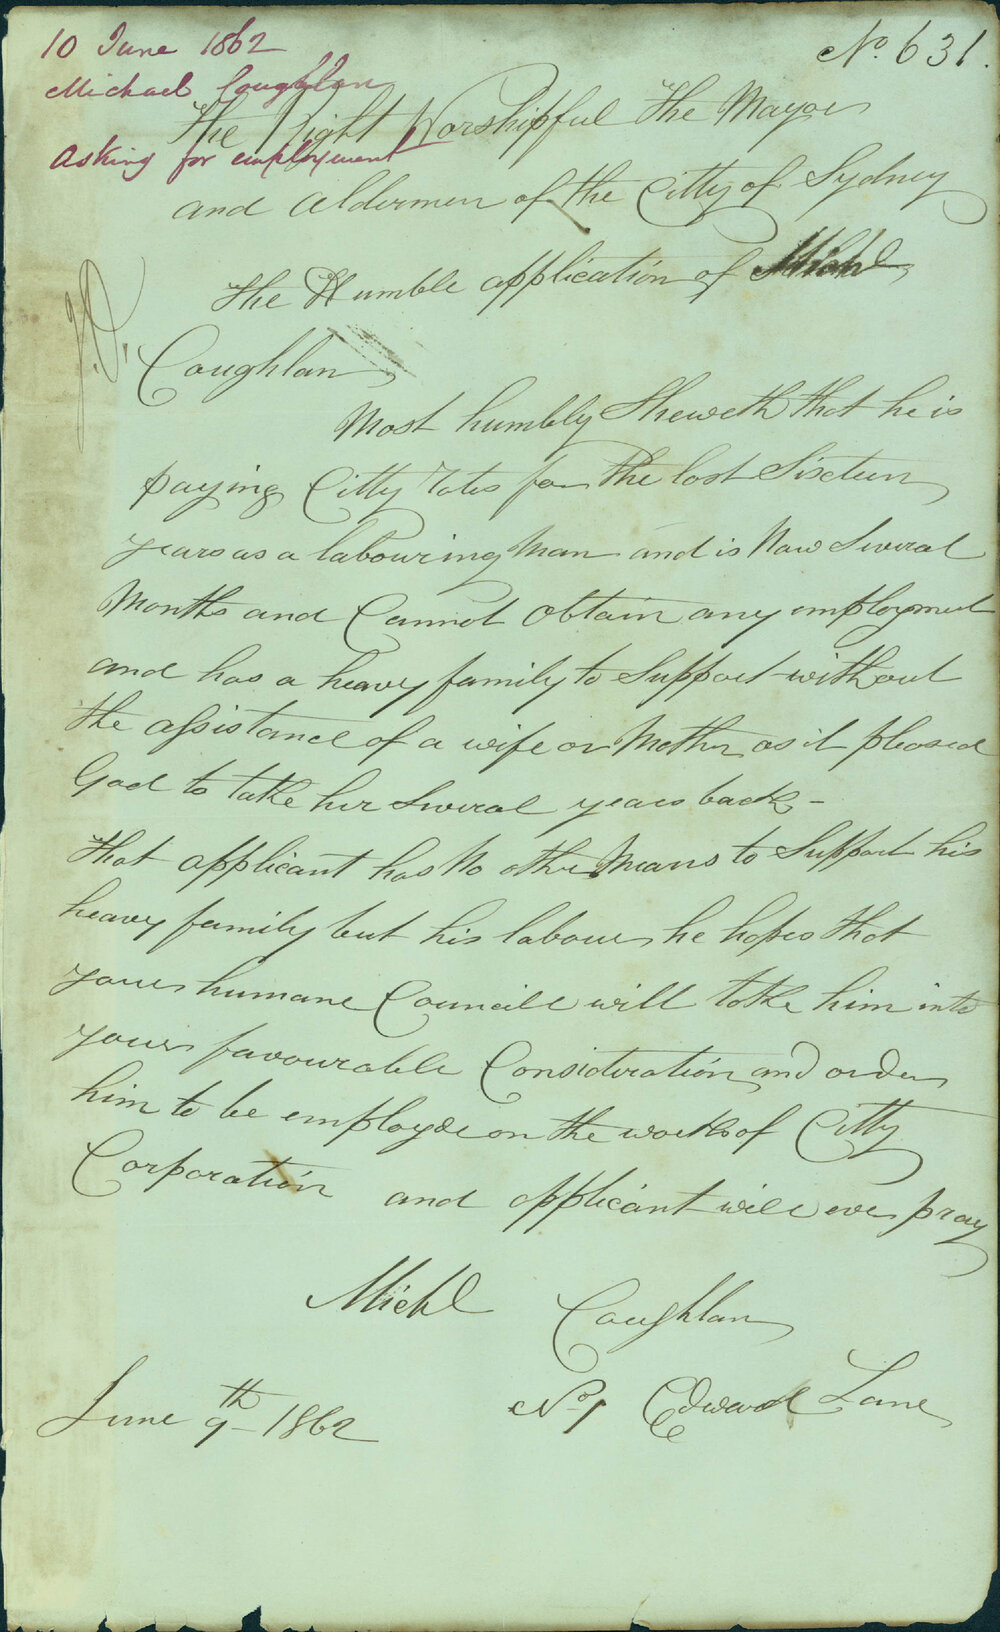 10 June 1862
No. 631.
Michael Coughlan
The Right Worshipful the Mayor
Asking for employment
and Aldermen of the Citty of Sydney
The Humble application of Michl
Coughlan
Most humbly Sheweth that he is
paying Citty rates for the last Sixteen
years as a labouring Man and is Now Several
Months and Cannot obtain any employment
and has a heavy family to Support without
the assistance of a wife or Mother as it pleased
God to take her Several years back -
that applicant has No other Means to Support his
heavy family but his labour, he hopes that
your humane Councill will take him into
your favourable Consideration and order
him to be employde on the works of Citty
Corporation and applicant will ever pray
Michl Coughlan
No 1 Edward Lane
June 9th 1862